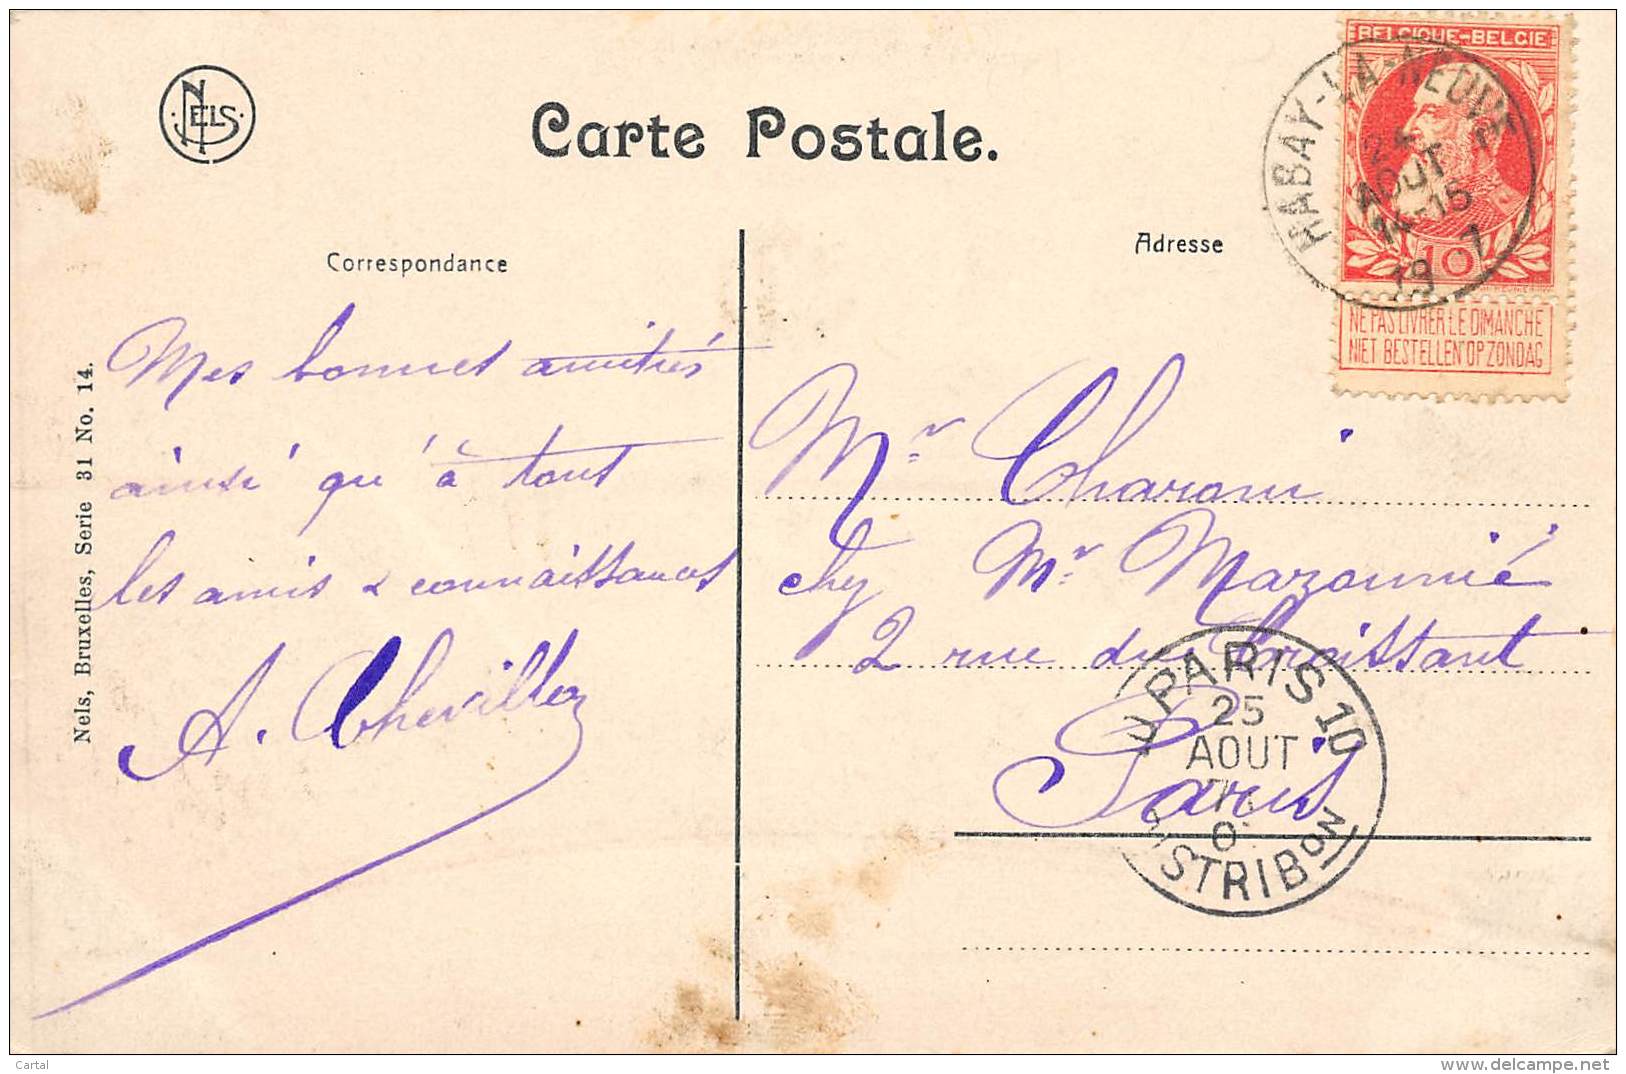 NELS
Carte Postale.
BELGIQUE-BELGIE
HABAY-LA-NEUVE
24
AOUT
14-15
19 7
10
NE PAS LIVRER LE DIMANCHE
NIET BESTELLEN OP ZONDAG
Correspondance
Adresse
Mes bonnes amitiés
ainsi qu'à tous
les amis & connaissances
A. Chevillon
Nels, Bruxelles, Serie 31 No. 14.
Mr Charoni
chez Mr Mazounié
2 rue du Croissant
Paris
PARIS 10
25
AOUT
DISTRIBON
Cartal
www.delcampe.net